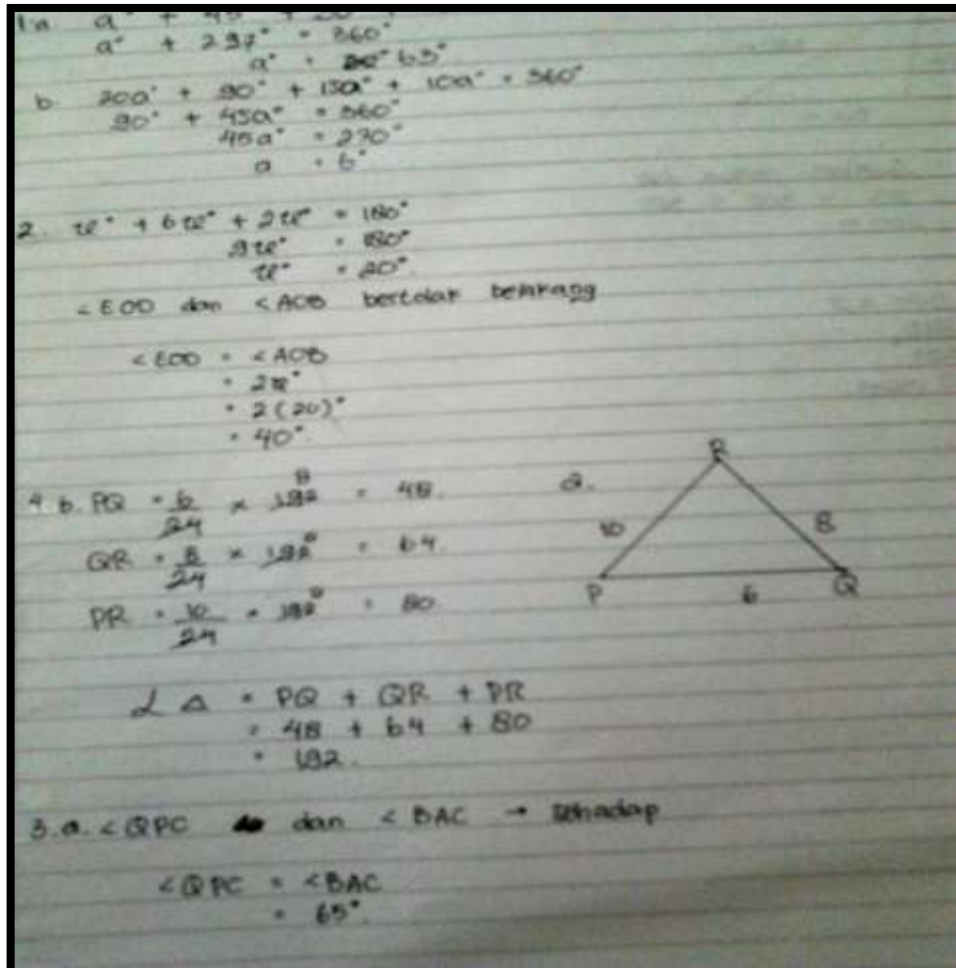 1.a a° + 45
a° + 297° = 360°
a° = 63°
b. 20a° + 90° + 15a° + 10a° = 360°
90° + 45a° = 360°
45a° = 270°
a = 6°
2. x° + 6x° + 2x° = 180°
9x° = 180°
x° = 20°
<EOD dan <AOB bertolak belakang
<EOD = <AOB
= 2x°
= 2(20)°
= 40°
4. b. PQ = 6/24 × 192 8 = 48
a.
R
QR = 8/24 × 192 8 = 64
10
8
PR = 10/24 × 192 8 = 80
P
6
Q
L △ = PQ + QR + PR
= 48 + 64 + 80
= 192.
3.a. <QPC dan <BAC → sehadap
<QPC = <BAC
= 65°.